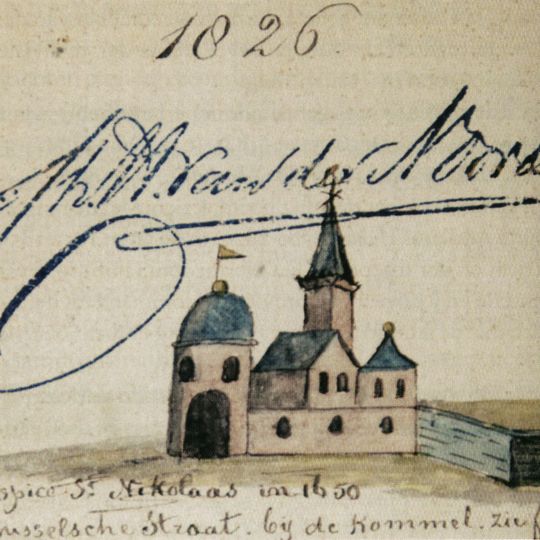 1826
Ph. W. van der Noord
ospice St Nikolaas in 1650
russelsche Straat. by de Kommel. zie